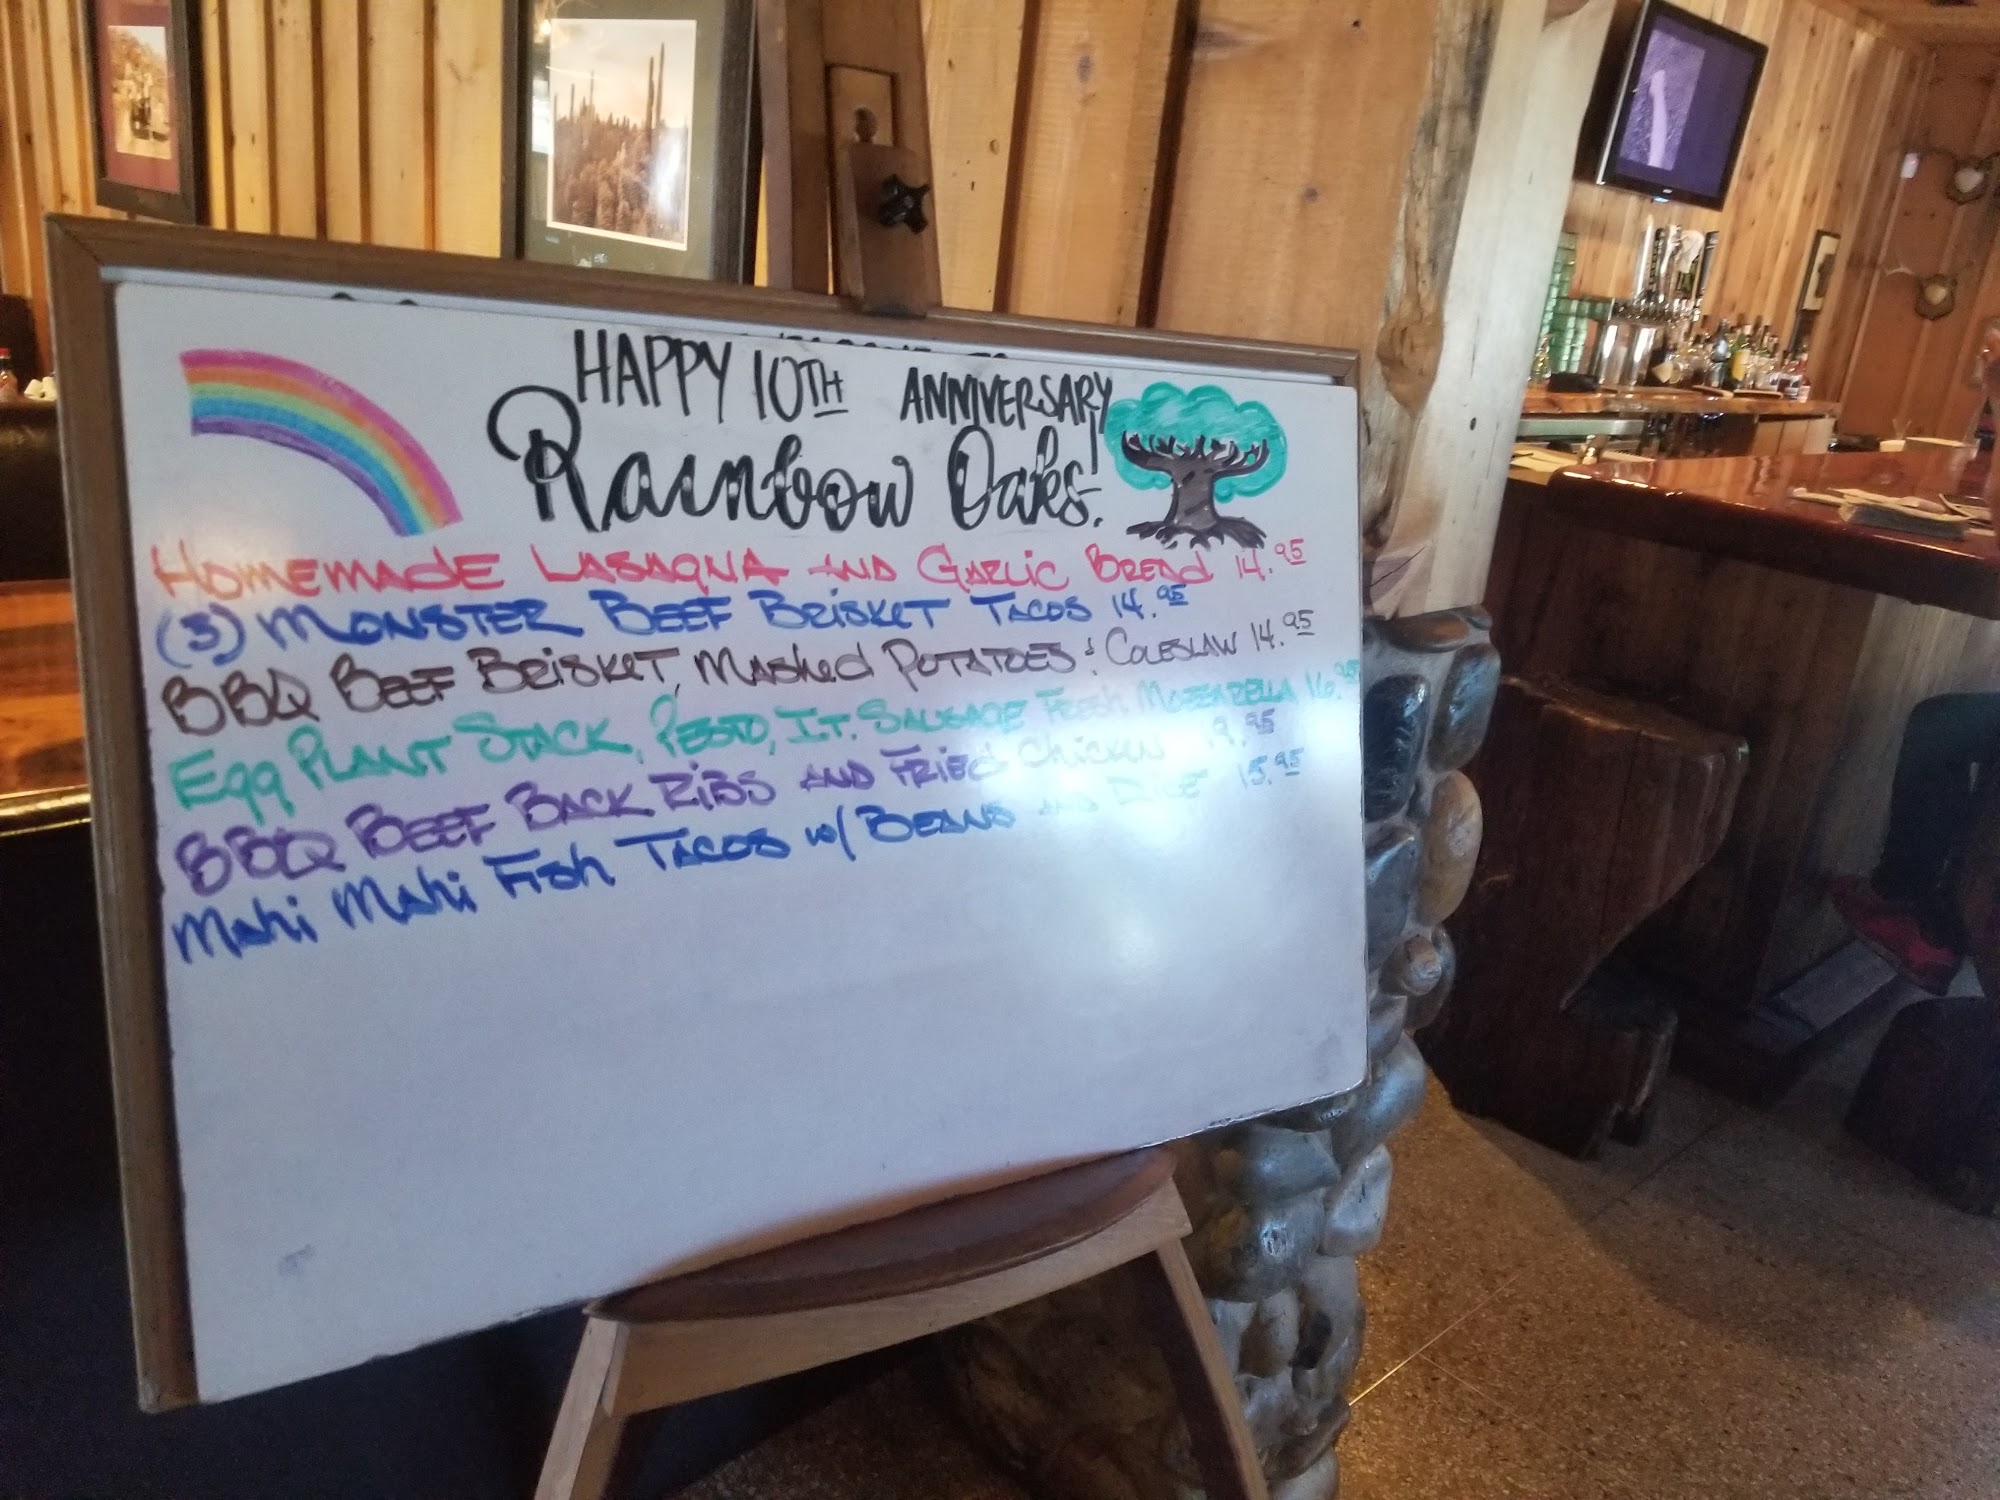 HAPPY 10TH ANNIVERSARY
Rainbow Oaks!
HOMEMADE LASAGNA AND GARLIC BREAD 14.95
(3) MONSTER BEEF BRISKET TACOS 14.95
BBQ BEEF BRISKET, MASHED POTATOES & COLESLAW 14.95
EGG PLANT STACK, PESTO, IT. SAUSAGE FRESH MOZZARELLA 16.95
BBQ BEEF BACK RIBS AND FRIED CHICKEN 9.95
MAHI MAHI FISH TACOS w/ BEANS AND RICE 15.95